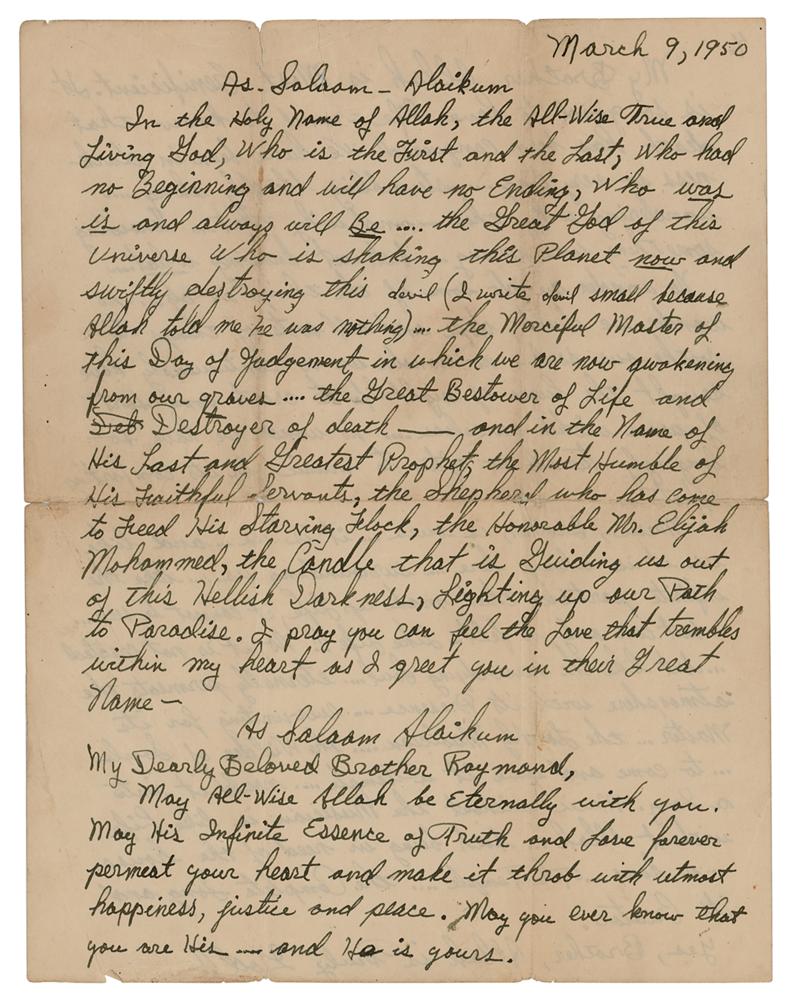 March 9, 1950
As-Salaam-Alaikum
In the Holy Name of Allah, the All-Wise True and
Living God, Who is the First and the Last, Who had
no Beginning and will have no Ending, Who was
is and always will Be .... the Great God of this
Universe Who is shaking this Planet now and
swiftly destroying this devil (I write devil small because
Allah told me he was nothing).... the Merciful Master of
this Day of Judgement in which we are now awakening
from our graves .... the Great Bestower of Life and
Deb Destroyer of death — and in the Name of
His Last and Greatest Prophet, the Most Humble of
His Faithful Servants, the Shepherd who has come
to Feed His Starving Flock, the Honorable Mr. Elijah
Mohammed, the Candle that is Guiding us out
of this Hellish Darkness, Lighting up our Path
to Paradise. I pray you can feel the Love that trembles
within my heart as I greet you in their Great
Name —
As Salaam Alaikum
My Dearly Beloved Brother Raymond,
May All-Wise Allah be Eternally with you.
May His Infinite Essence of Truth and Love forever
permeat your heart and make it throb with utmost
happiness, justice and peace. May you ever know that
you are His .... and He is yours.